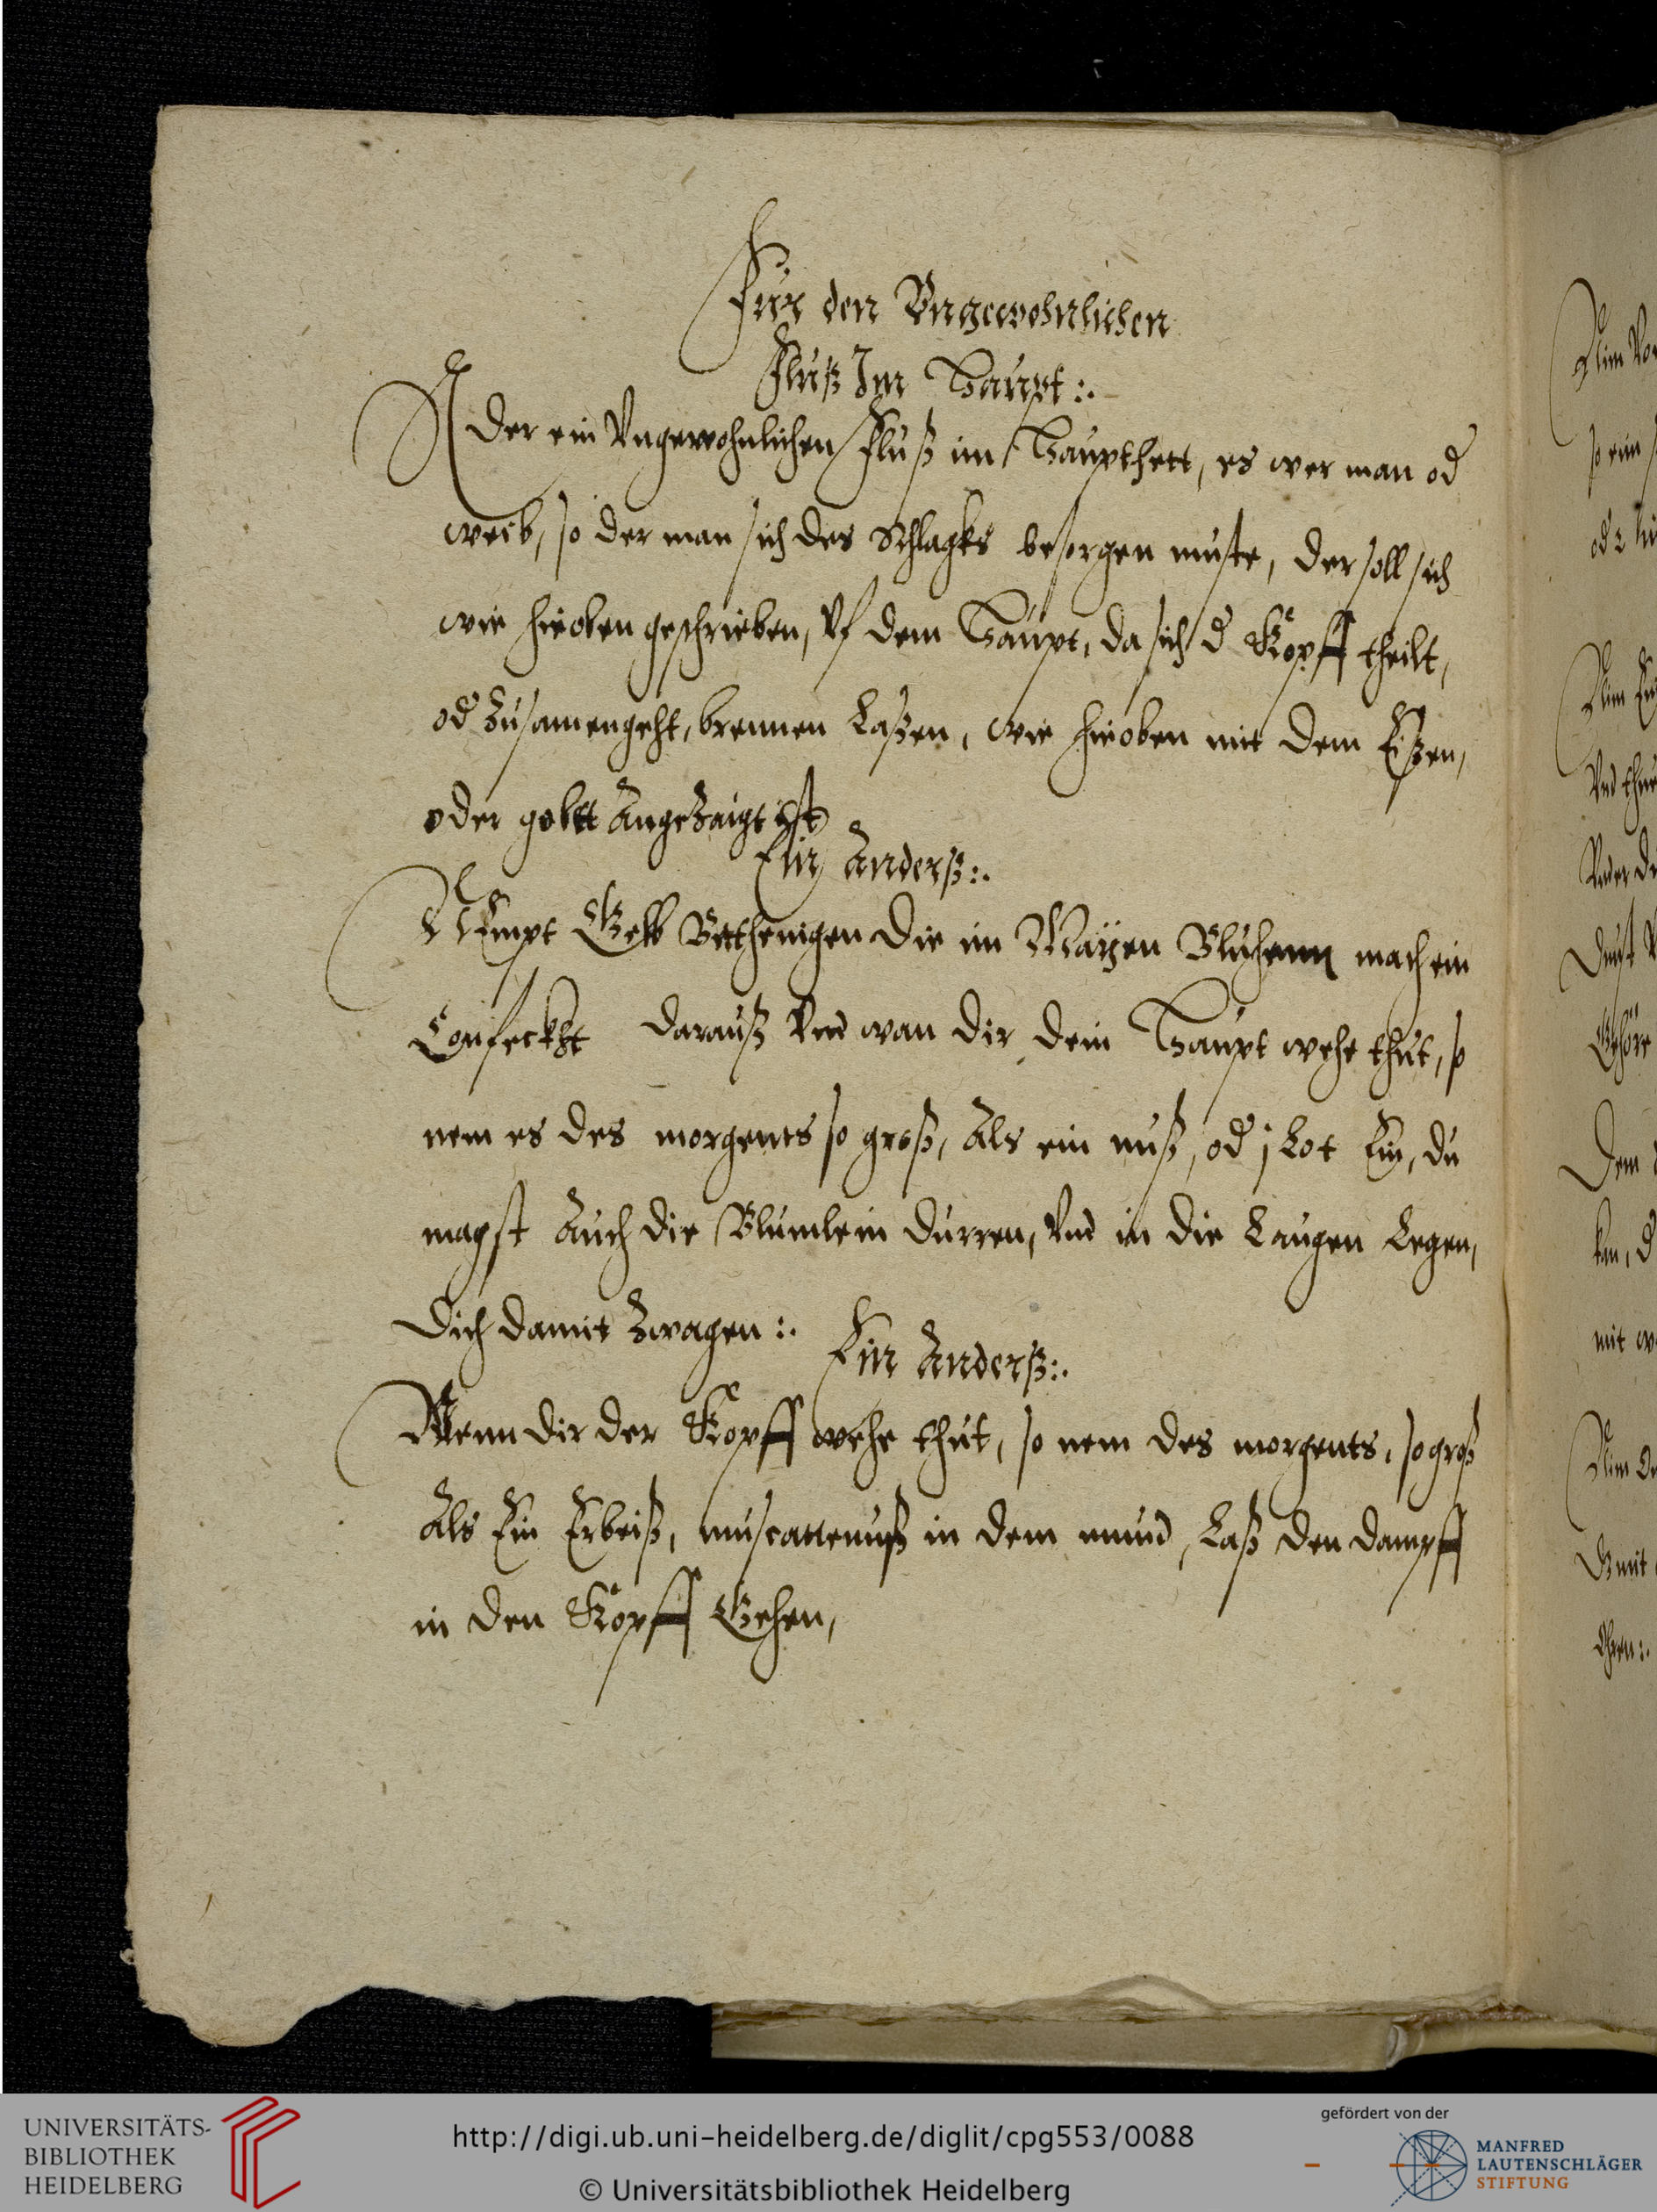 Fur den Vngewohnlichen
Fluß Im Haupt :.
Der ein Vngewohnlichen Fluß im Haupt hett, es wer man od
weib, so der man sich des Schlagks besorgen muste, der soll sich
wie hieoben geschrieben, Vf dem Haupt, da sich d Kopff theilt,
od Zusamengeht, brennen Laßen, wie hieoben mit dem Eißen,
oder goltt Angezaigt ist
Ein Anderß :.
NEmpt Gelb Betthenigen die im Mayen Bluhenn mach ein
Confeckt darauß Vnd wan dir dein Haupt wehe thut, so
nem es des morgents so groß, Als ein nuß, od j Lot Ein, du
magst Auch die Blumlein durren, Vnd in die Laugen Legen,
Dich damit Zwagen :.
Ein Anderß :.
Wenn dir der Kopff wehe thut, so nem des morgents, so groß
Als Ein Erbeiß, muscattenuß in dem mund, Laß den dampff
in den Kopff Gehen,
Nim
so ein
od 2
Nim
Vnd
Dem
mit
Nim
mit
Ohren :.
UNIVERSITÄTS-
BIBLIOTHEK
HEIDELBERG
http://digi.ub.uni-heidelberg.de/diglit/cpg553/0088
© Universitätsbibliothek Heidelberg
gefördert von der
MANFRED
LAUTENSCHLÄGER
STIFTUNG